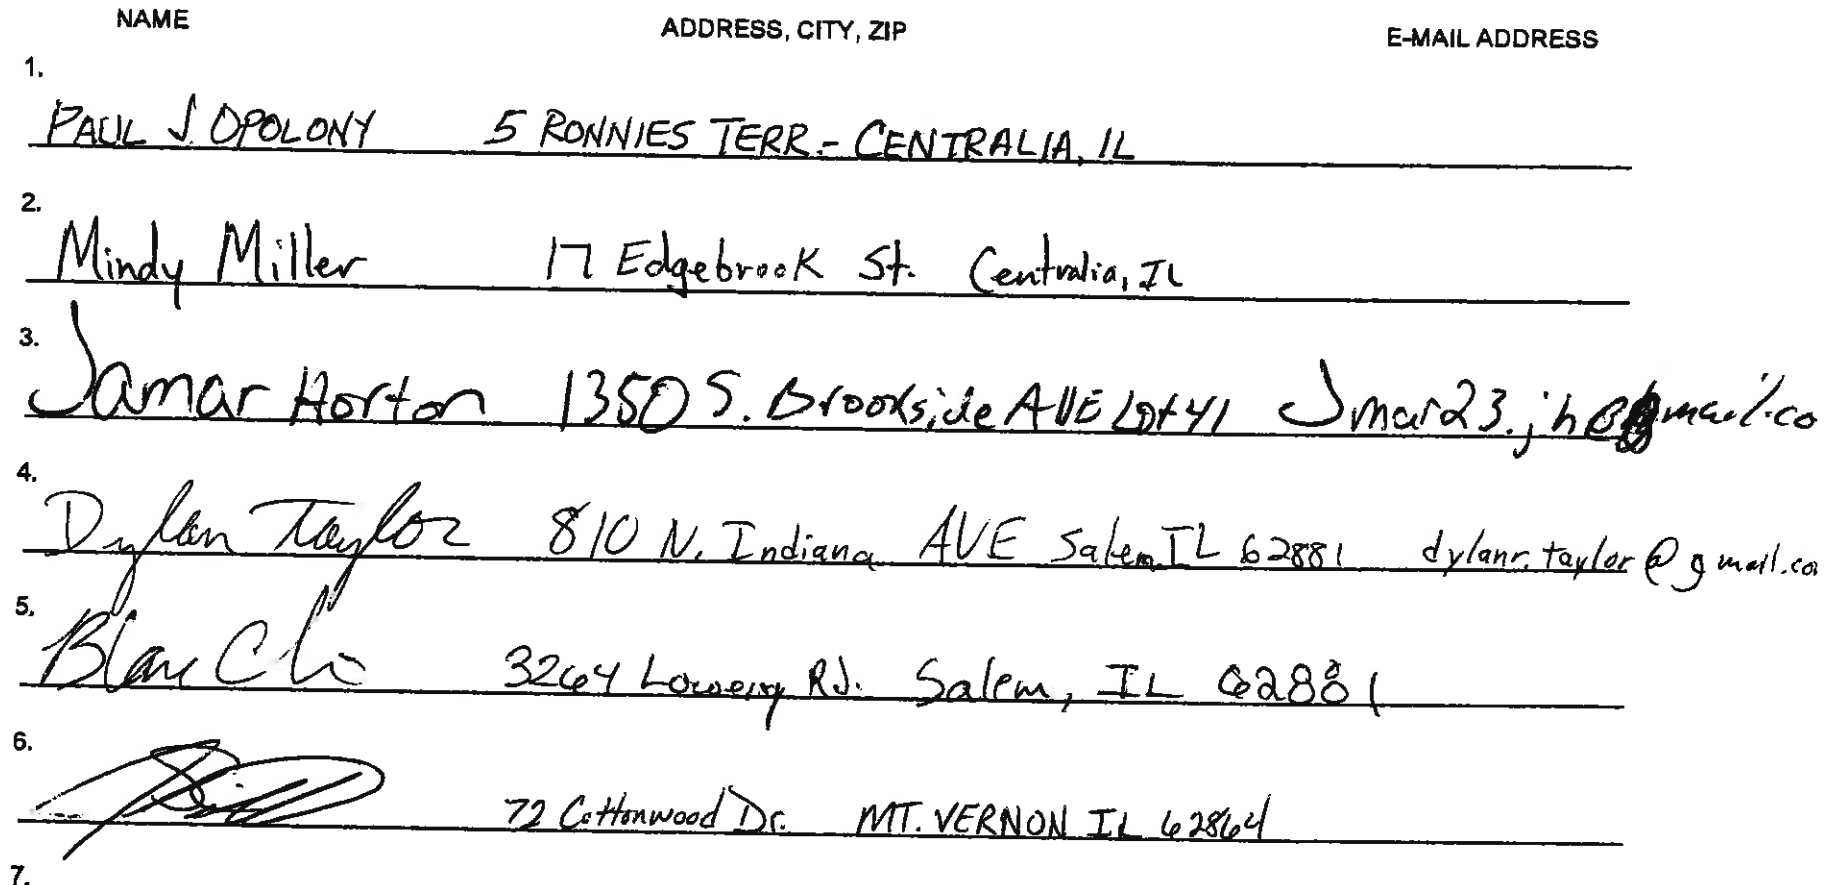 NAME ADDRESS, CITY, ZIP E-MAIL ADDRESS
1.
PAUL J. OPOLONY 5 RONNIES TERR.- CENTRALIA, IL
2.
Mindy Miller 17 Edgebrook St. Centralia, IL
3.
Jamar Horton 1350 S. Brookside AVE Lot 41 Jmar23.jh@gmail.co
4.
Dylan Taylor 810 N. Indiana AVE Salem IL 62881 dylanr.taylor@gmail.co
5.
3264 Lowery Rd. Salem, IL 62881
6.
72 Cottonwood Dr. MT. VERNON IL 62864
7.